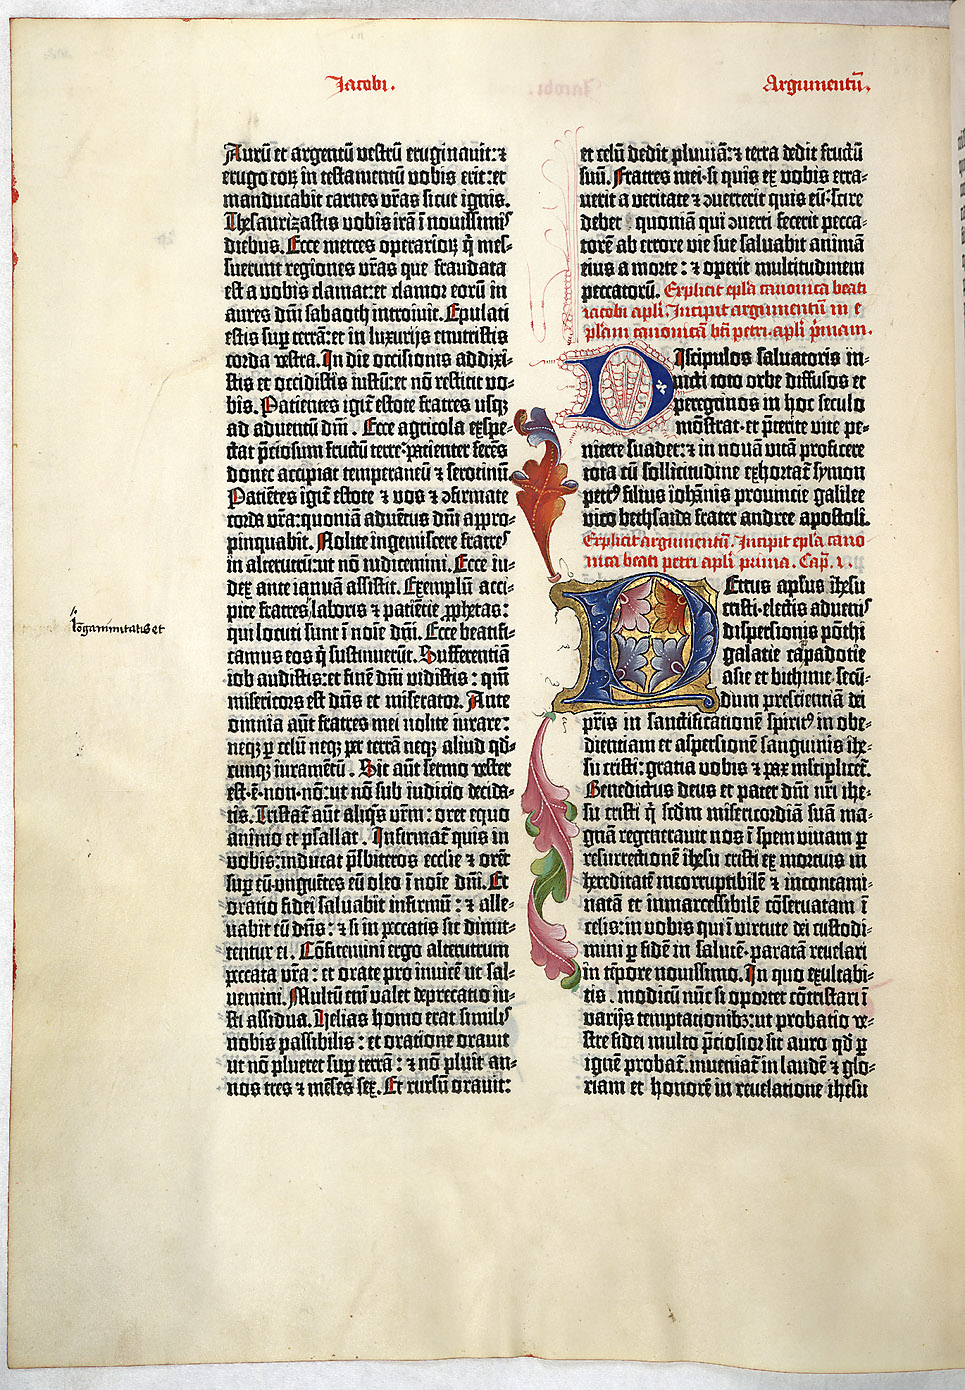 Jacobi.
Argumentū.
Aurū et argentū vestrū eruginavit: ⁊
erugo eoꝝ in testamentū vobis erit: et
manducabit carnes vr̄as sicut ignis.
Thesaurizastis vobis irā ī novissimis
diebus. Ecce merces operarioꝝ q̄ mes-
suerunt regiones vr̄as que fraudata
est a vobis clamat: et clamor eorū in
aures dn̄i sabaoth introivit. Epulati
estis suꝑ terrā: et in luxurijs enutristis
corda vestra. In die occisionis addixi-
stis et occidistis iustū: et nō restitit vo-
bis. Patientes igit̄ estote fratres usqꝫ
ad adventū dn̄i. Ecce agricola expe-
ctat p̄ciosum fructū terre: patienter ferēs
donec accipiat temperaneū ⁊ serotinū.
Patiētes igit̄ estote ⁊ vos ⁊ ꝯfirmate
corda vr̄a: quoniā advētus dn̄i appro-
pinquabit. Nolite ingemiscere fratres
in alterutrū: ut nō iudicemini. Ecce iu-
dex ante ianuā assistit. Exemplū acci-
pite fratres laboris ⁊ patiētie ꝓphetas:
qui locuti sunt ī noīe dn̄i. Ecce beatifi-
camus eos q̄ sustinuerūt. Sufferentiā
iob audistis: et finē dn̄i vidistis: qm̄
misericors est dn̄s et miserator. Ante
omnia aūt fratres mei nolite iurare:
neqꝫ ꝑ celū neqꝫ ꝑ terrā neqꝫ aliud qd̄-
cunqꝫ iuramētū. Sit aūt sermo vester
est·ē·non·nō: ut nō sub iudicio decida-
tis. Tristat̄ aūt aliq̄s vr̄m: oret equo
animo et psallat. Infirmat̄ quis in
vobis: inducat p̄sbiteros ecclie ⁊ orēt
suꝑ eū·ungūetes eū oleo ī noīe dn̄i. Et
oratio fidei salvabit infirmū: ⁊ alle-
vabit eū dn̄s: ⁊ si in peccatis sit dimit-
tentur ei. Cōfitemini ergo alterutrum
peccata vr̄a: et orate pro invicē ut sal-
vemini. Multū eni valet deprecatio iu-
sti assidua. Helias homo erat similis
nobis passibilis: et oratione oravit
ut nō plueret suꝑ terrā: ⁊ nō pluit an-
nos tres ⁊ mēses sex. Et rursū oravit:
et celū dedit pluviā: ⁊ terra dedit fructū
suū. Fratres mei·si quis ex vobis erra-
verit a veritate ⁊ ꝯverterit quis eū: scire
debet quoniā qui ꝯverti fecerit pecca-
torē ab errore vie sue salvabit animā
eius a morte: ⁊ operit multitudinem
peccatorū. Explicit epl̄a canonica beati
iacobi apl̄i. Incipit argumentū in e
pl̄am canonicā bt̄i petri apl̄i primam.
Discipulos salvatoris in-
victi toto orbe diffusos et
peregrinos in hoc seculo
mōstrat·et p̄terite vite pe-
nitere suadet: ⁊ in novā vitā proficere
tota cū sollicitudine exhortat̄ symon
petrꝰ filius iohānis provincie galilee
vico bethsaida frater andree apostoli.
Explicit argumentū. Incipit epl̄a cano
nica beati petri apl̄i prima. Cap. I.
Petrus apl̄us ihesu
cristi·electis advenis
dispersionis pōthi
galatie capadotie
asie et bithinie·secū-
dum prescientiā dei
pr̄is in sanctificationē spiritꝰ in obe-
dientiam et aspersionē sanguinis ihe-
su cristi: gratia vobis ⁊ pax multiplicet̄.
Benedictus deus et pater dn̄i nr̄i ihe-
su cristi q̄ scd̄m misericordiā suā ma-
gnā regeneravit nos ī spem vivam ꝑ
resurrectionē ihesu cristi ex mortuis in
hereditatē incorruptibilē ⁊ incontami-
natā et immarcessibilē cōservatam ī
celis: in vobis qui ī virtute dei custodi-
mini ꝑ fidē in salutē·paratā revelari
in tp̄ore novissimo. In quo exultabi-
tis·modicū nūc si oportet cōtristari ī
varijs temptationibꝫ: ut probatio ve-
stre fidei multo p̄ciosior sit auro qd̄ ꝑ
ignē probat̄·inveniat̄ in laudē ⁊ glo-
riam et honorē in revelatione ihesu
lōganimitatis et